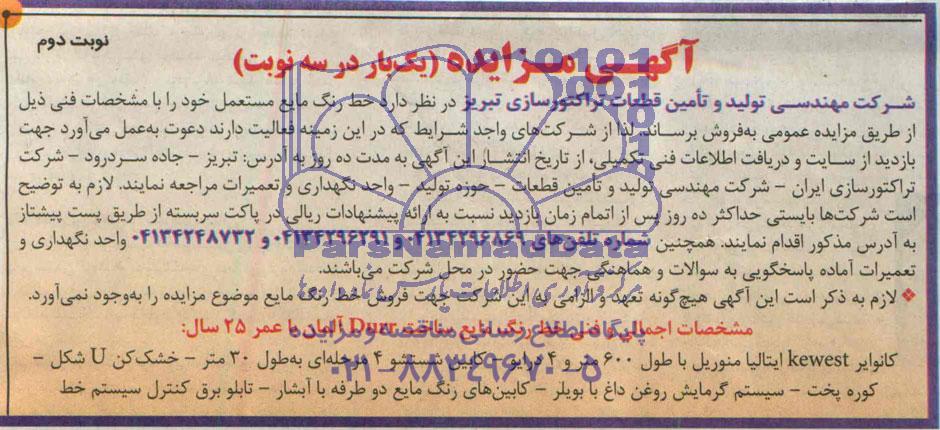 نوبت دوم
آگهـی مـزایده (یک‌بار در سه نوبت)
شرکت مهندسـی تولید و تأمین قطعات تراکتورسازی تبریز در نظر دارد خط رنگ مایع مستعمل خود را با مشخصات فنی ذیل
از طریق مزایده عمومی به‌فروش برساند. لذا از شرکت‌های واجد شرایط که در این زمینه فعالیت دارند دعوت به‌عمل می‌آورد جهت
بازدید از سایت و دریافت اطلاعات فنی تکمیلی، از تاریخ انتشار این آگهی به مدت ده روز به آدرس: تبریز – جاده سردرود – شرکت
تراکتورسازی ایران – شرکت مهندسی تولید و تأمین قطعات – حوزه تولید – واحد نگهداری و تعمیرات مراجعه نمایند. لازم به توضیح
است شرکت‌ها بایستی حداکثر ده روز پس از اتمام زمان بازدید نسبت به ارائه پیشنهادات ریالی در پاکت سربسته از طریق پست پیشتاز
به آدرس مذکور اقدام نمایند. همچنین شماره تلفن‌های ۰۴۱۳۴۲۹۶۸۶۹ و ۰۴۱۳۴۲۹۶۲۹۱ و ۰۴۱۳۴۲۴۸۷۳۲ واحد نگهداری و
تعمیرات آماده پاسخگویی به سوالات و هماهنگی جهت حضور در محل شرکت می‌باشند.
❖ لازم به ذکر است این آگهی هیچ‌گونه تعهد و الزامی به این شرکت جهت فروش خط رنگ مایع موضوع مزایده را به‌وجود نمی‌آورد.
مشخصات اجمالی و فنی خط رنگ مایع ساخت Durr آلمان با عمر ۲۵ سال:
کانوایر kewest ایتالیا منوریل با طول ۶۰۰ متر و ۴ درایو – کابین شستشو ۴ مرحله‌ای به‌طول ۳۰ متر – خشک‌کن U شکل –
کوره پخت – سیستم گرمایش روغن داغ با بویلر – کابین‌های رنگ مایع دو طرفه با آبشار – تابلو برق کنترل سیستم خط
ParsNamadData
پایگاه اطلاع رسانی مناقصه و مزایده
۰۲۱-۸۸۳۴۹۶۷۰-۵